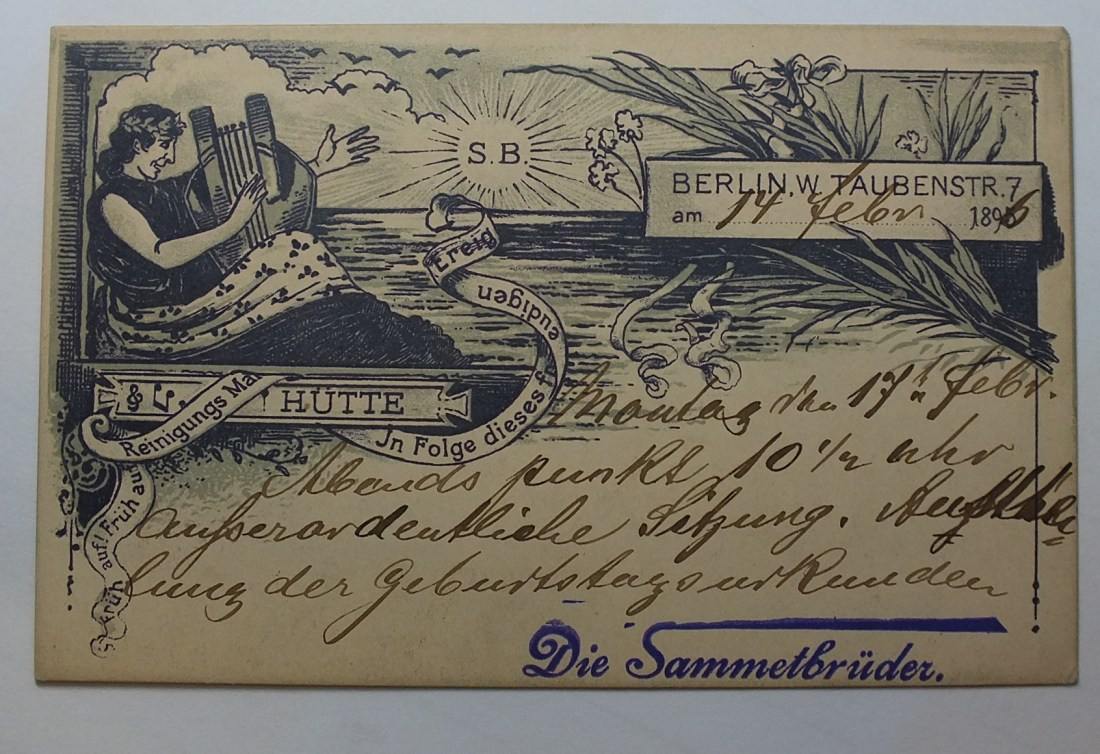 S.B.
BERLIN, W. TAUBENSTR. 7
am 14 Febr. 1896
Ereig
eudigen
Jn Folge dieses f
Reinigungs Ma
früh auf! Früh au
& L. HÜTTE
Montag den 17t. Febr.
Abends punkt 10 1/2 Uhr
außerordentliche Sitzung.
lung der Geburtstagsurkunden
Die Sammetbrüder.